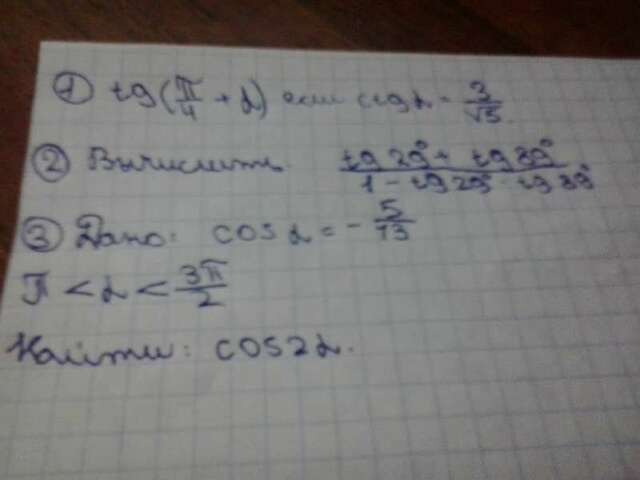 ① tg(π/4 + α) если ctg α = 3/√5
② Вычислить (tg 29° + tg 89°)/(1 - tg 29° · tg 89°)
③ Дано: cos α = - 5/13
π < α < 3π/2
Найти: cos2α.